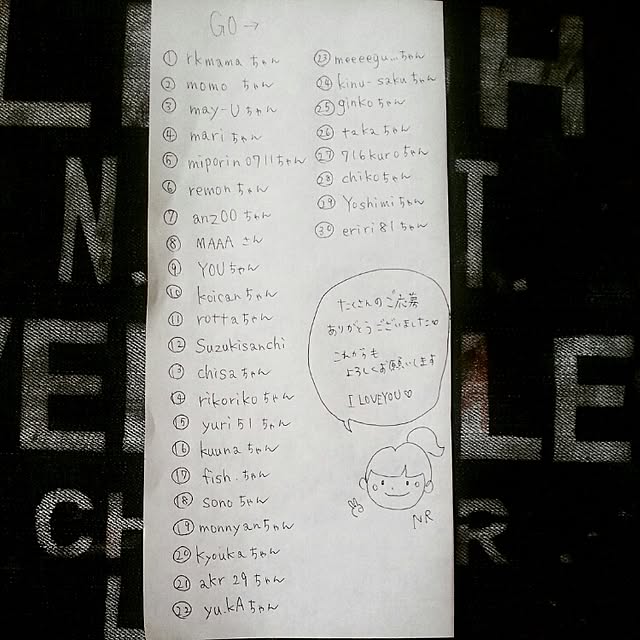 GO→
① rkmama ちゃん
② momo ちゃん
③ may-U ちゃん
④ mari ちゃん
⑤ miporin0711ちゃん
⑥ remonちゃん
⑦ anzooちゃん
⑧ MAAA さん
⑨ YOUちゃん
⑩ koicanちゃん
⑪ rottaちゃん
⑫ Suzukisanchi
⑬ chisaちゃん
⑭ rikorikoちゃん
⑮ yuri51ちゃん
⑯ kuunaちゃん
⑰ fish.ちゃん
⑱ sonoちゃん
⑲ monnyanちゃん
⑳ kyoukaちゃん
㉑ akr29ちゃん
㉒ yu.kAちゃん
㉓ meeeegu...ちゃん
㉔ kinu-sakuちゃん
㉕ ginkoちゃん
㉖ takaちゃん
㉗ 716kuroちゃん
㉘ chikoちゃん
㉙ Yoshimiちゃん
㉚ eriri81ちゃん
たくさんのご応募
ありがとうございました♡
これからも
よろしくお願いします
I LOVEYOU♡
NR